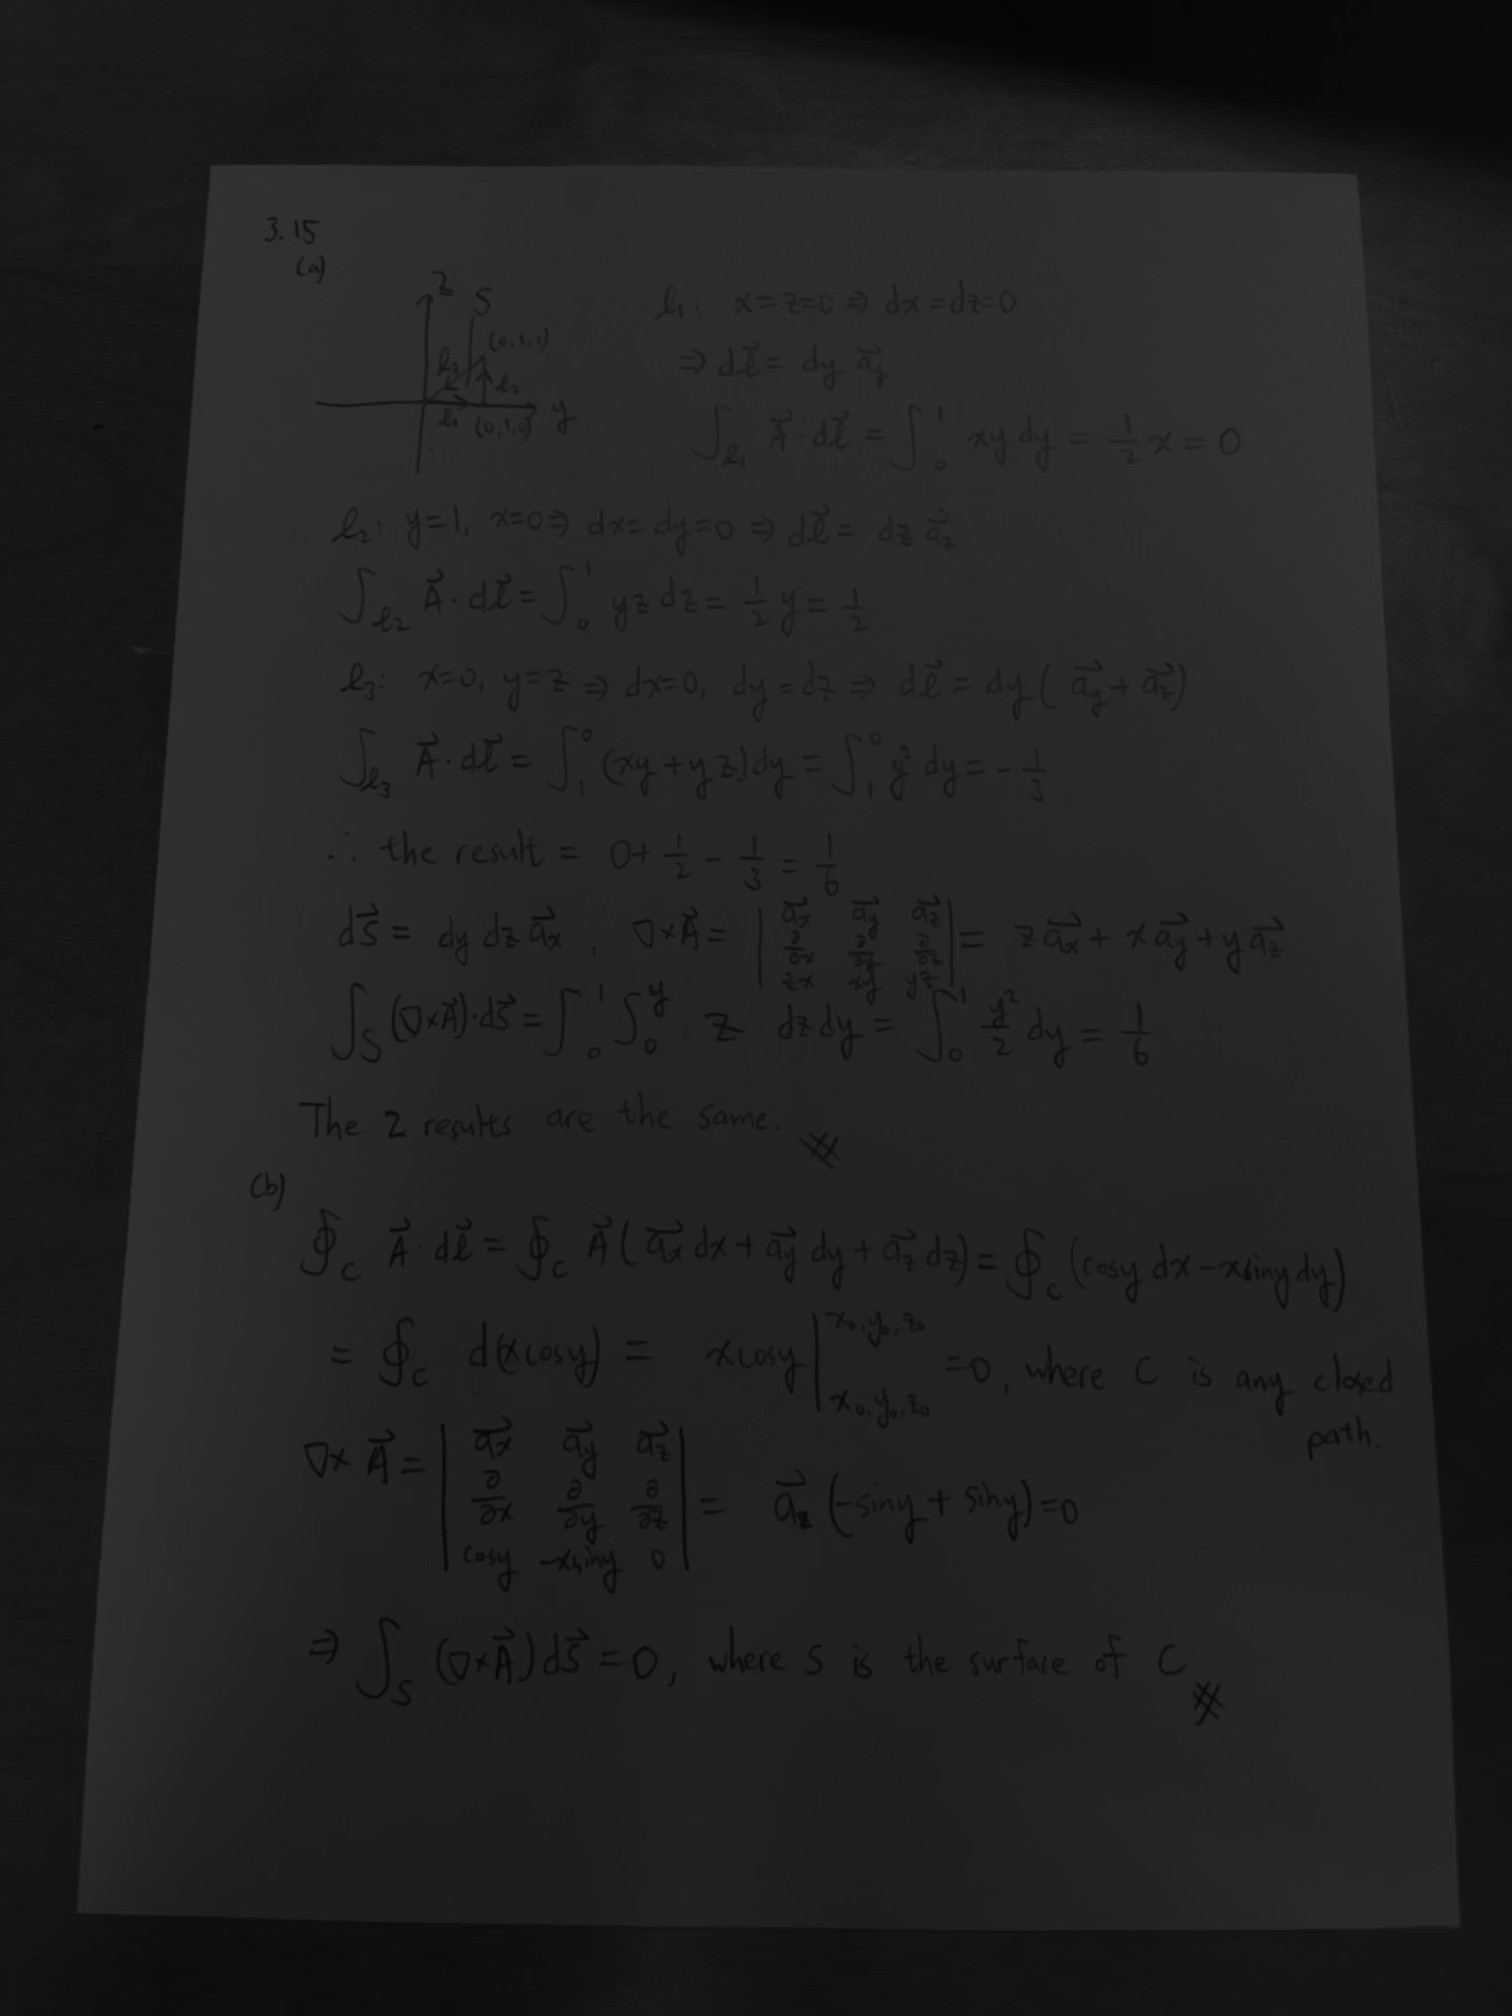 3.15
(a)
z S
(0,1,1)
l₃ l₂
l₁ (0,1,0) y
l₁: x=z=0 ⇒ dx=dz=0
⇒ dl⃗ = dy a⃗y
∫l₁ A⃗·dl⃗ = ∫₀¹ xy dy = 1/2 x = 0
l₂: y=1, x=0 ⇒ dx=dy=0 ⇒ dl⃗ = dz a⃗z
∫l₂ A⃗·dl⃗ = ∫₀¹ yz dz = 1/2 y = 1/2
l₃: x=0, y=z ⇒ dx=0, dy=dz ⇒ dl⃗ = dy(a⃗y+a⃗z)
∫l₃ A⃗·dl⃗ = ∫₁⁰ (xy+yz)dy = ∫₁⁰ y² dy = -1/3
∴ the result = 0+1/2-1/3 = 1/6
dS⃗ = dy dz a⃗x, ∇×A⃗ = |a⃗x a⃗y a⃗z; ∂/∂x ∂/∂y ∂/∂z; zx xy yz| = z a⃗x + x a⃗y + y a⃗z
∫S (∇×A⃗)·dS⃗ = ∫₀¹ ∫₀ʸ z dz dy = ∫₀¹ y²/2 dy = 1/6
The 2 results are the same.
(b)
∮c A⃗·dl⃗ = ∮c A⃗(a⃗x dx + a⃗y dy + a⃗z dz) = ∮c (cosy dx - xsiny dy)
= ∮c d(xcosy) = xcosy | x₀,y₀,z₀ x₀,y₀,z₀ = 0, where C is any closed
path.
∇×A⃗ = |a⃗x a⃗y a⃗z; ∂/∂x ∂/∂y ∂/∂z; cosy -xsiny 0| = a⃗z (-siny + siny) = 0
⇒ ∫S (∇×A⃗)dS⃗ = 0, where S is the surface of C